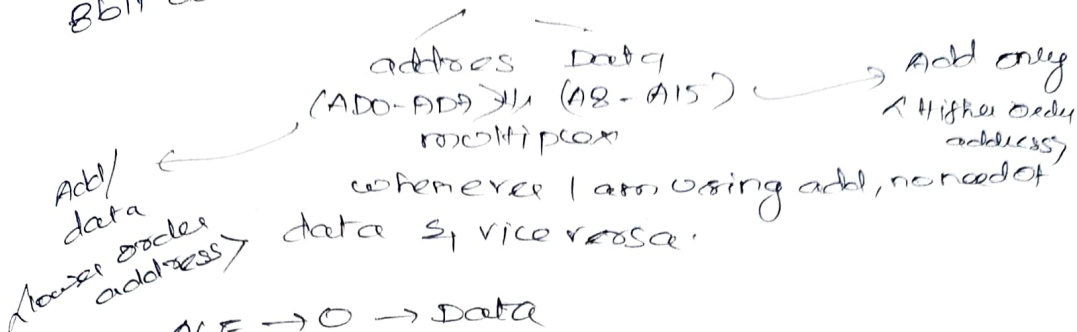 8bit
addres Data
(AD0-AD7) (A8-A15) → Add only
<Higher order
address>
multiplex
Add/
data
<lower order
address>
whenever I am using add, no need of
data & vice versa.
ALE → 0 → Data